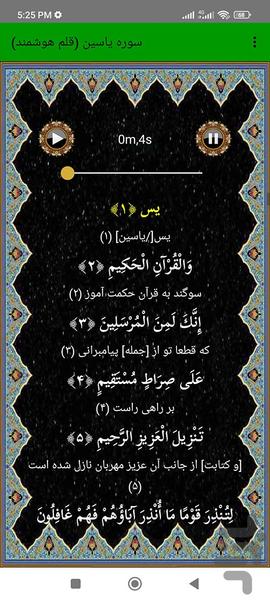 5:25 PM
سوره یاسین (قلم هوشمند)
0m,4s
یس ﴿۱﴾
یس[/یاسین] (۱)
وَالْقُرْآنِ الْحَكِيمِ ﴿۲﴾
سوگند به قرآن حکمت آموز (۲)
إِنَّكَ لَمِنَ الْمُرْسَلِينَ ﴿۳﴾
که قطعا تو از [جمله] پیامبرانی (۳)
عَلَى صِرَاطٍ مُسْتَقِيمٍ ﴿۴﴾
بر راهی راست (۴)
تَنْزِيلَ الْعَزِيزِ الرَّحِيمِ ﴿۵﴾
[و کتابت] از جانب آن عزیز مهربان نازل شده است
(۵)
لِتُنْذِرَ قَوْمًا مَا أُنْذِرَ آبَاؤُهُمْ فَهُمْ غَافِلُونَ